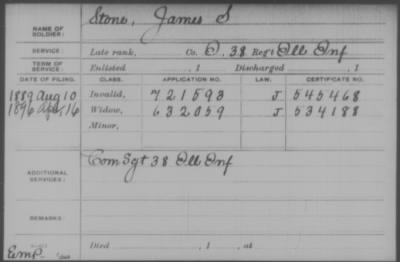 NAME OF SOLDIER: Stone, James S
SERVICE: Late rank, Co. D, 38 Reg't Ill Inf
TERM OF SERVICE: Enlisted , 1 Discharged , 1
DATE OF FILING. CLASS. APPLICATION NO. LAW. CERTIFICATE NO.
1889 Aug 10 Invalid, 721593 J 545468
1896 Apr, 16 Widow, 632059 J 534188
Minor,
ADDITIONAL SERVICES: Com Sgt 38 Ill Inf
REMARKS:
Died , 1 , at